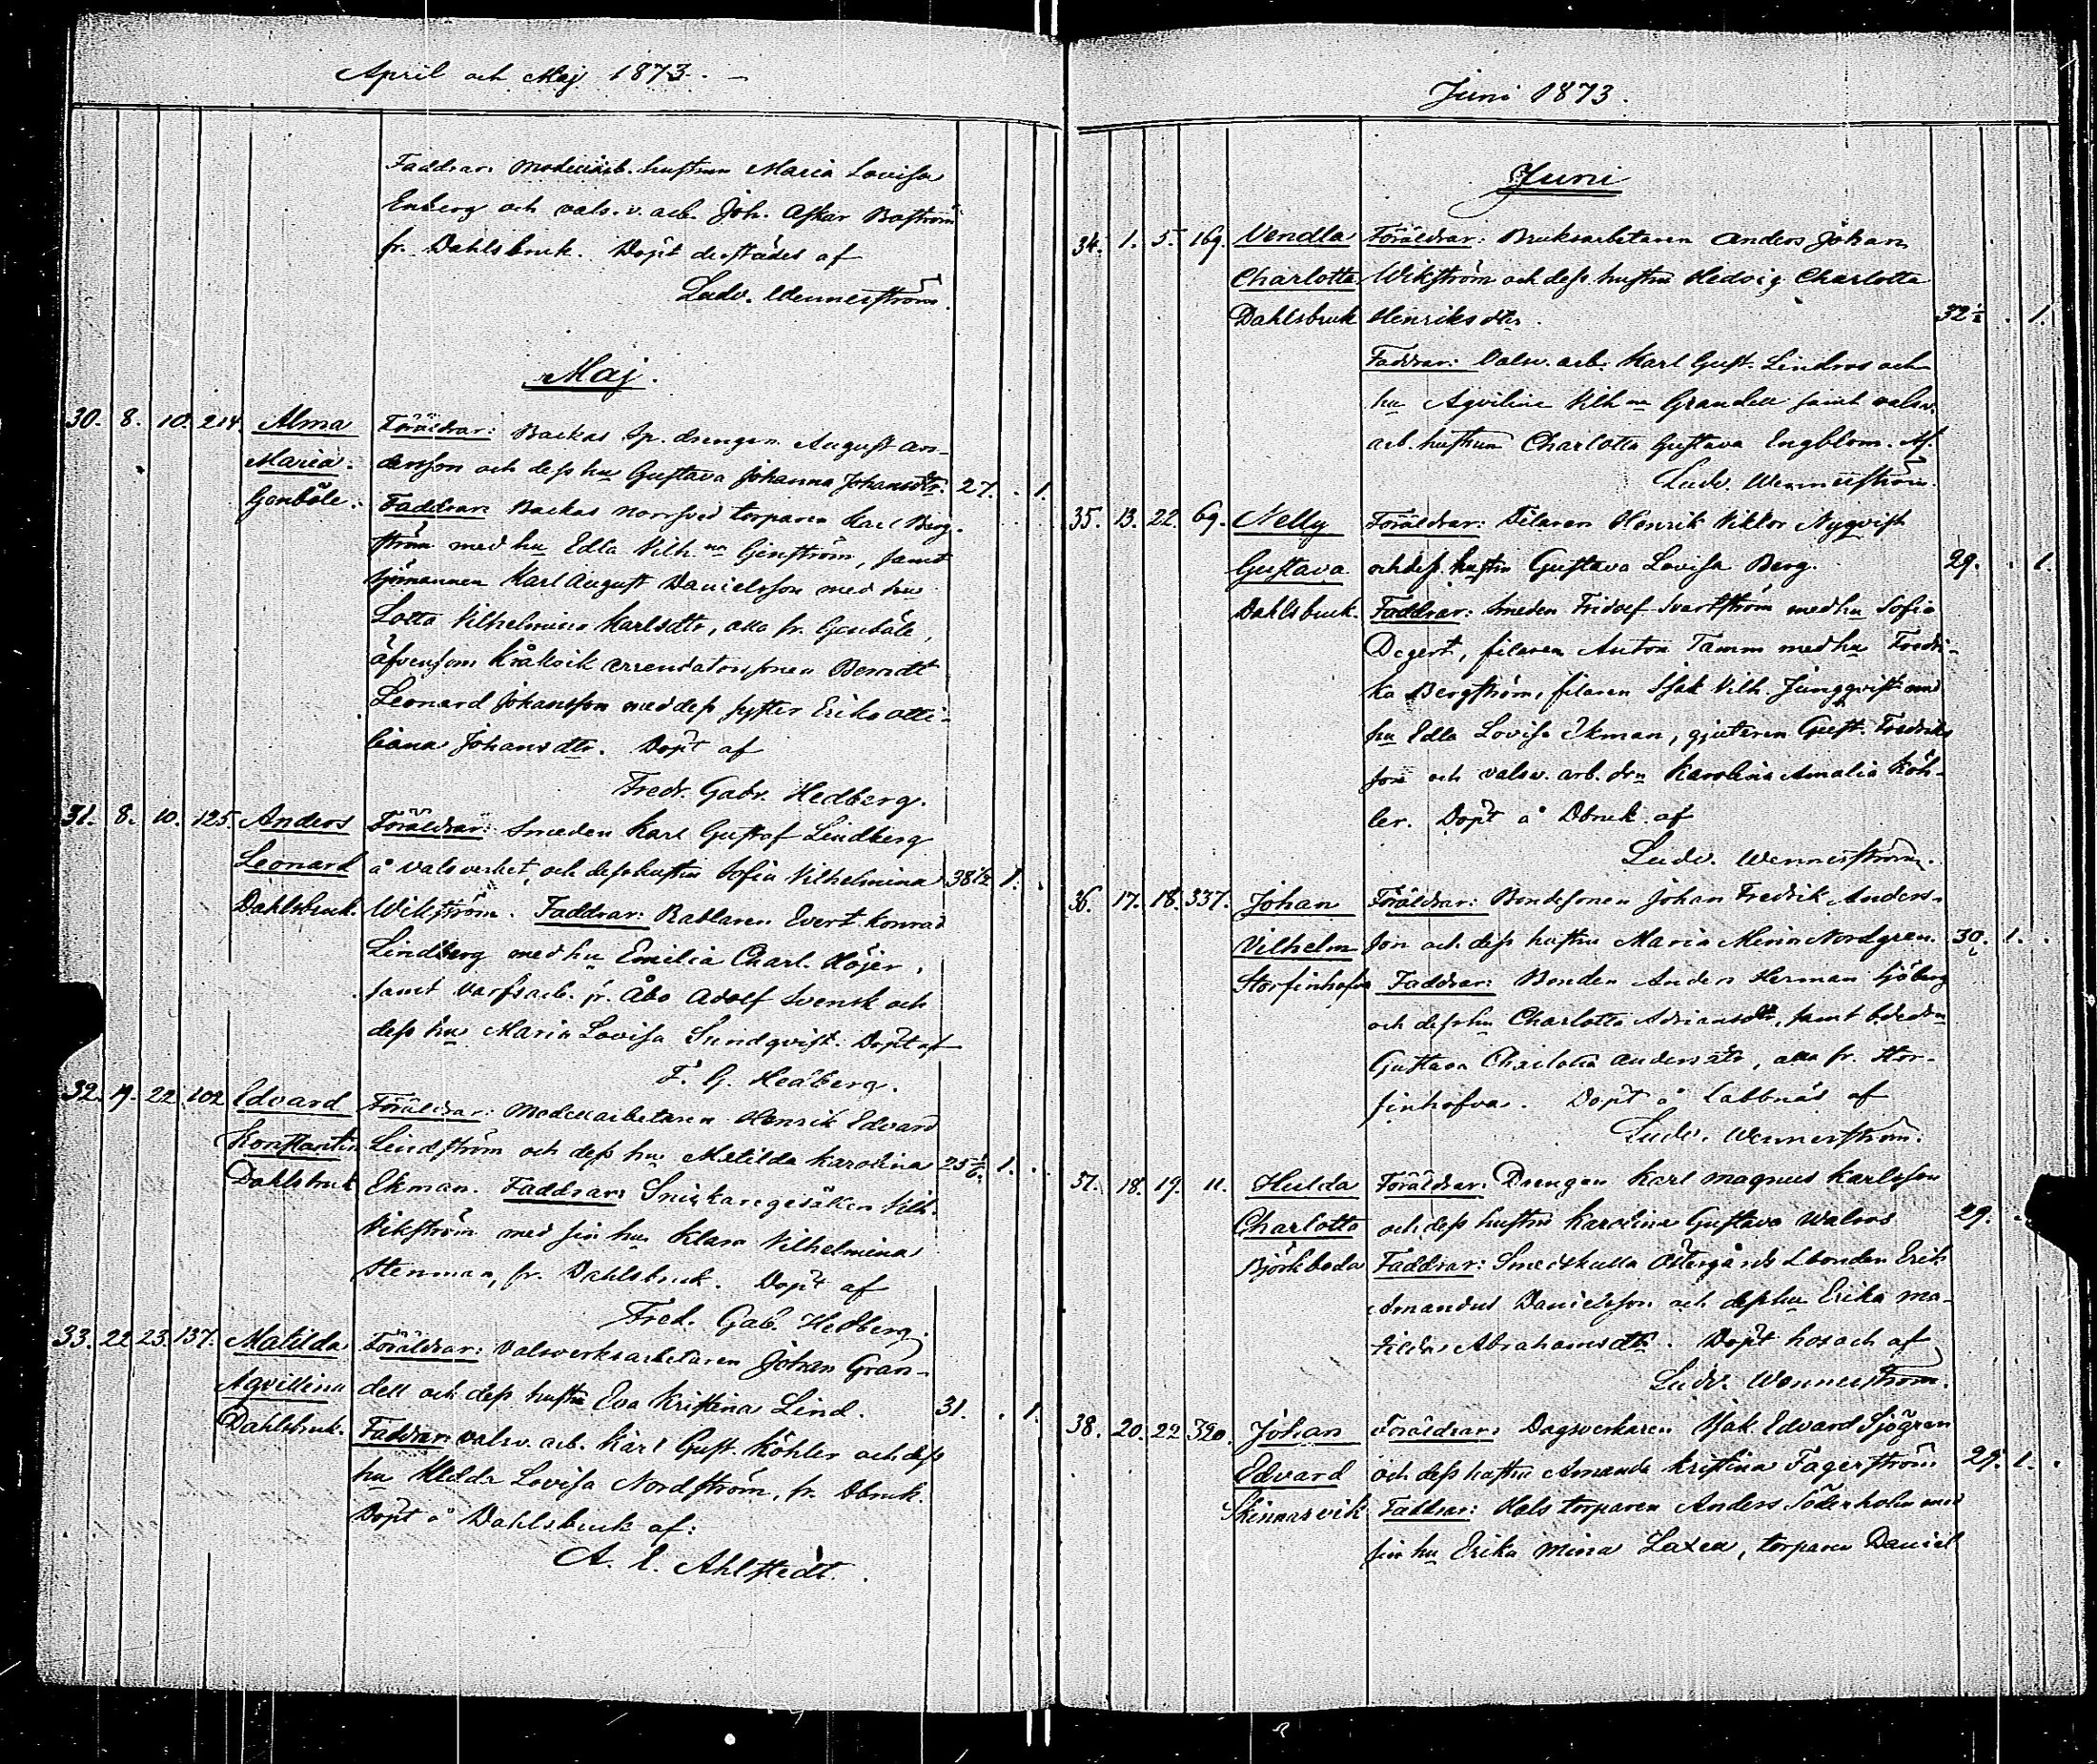 April och Maj 1873.
Faddrar: Modellarb. hustrun Maria Lovisa
Enberg och valsv. arb. Joh. Oskar Boström
fr. Dahlsbruk. Döpt derstädes af
Ludv. Wennerström.
Maj.
30. 8. 10. 214. Alma Föräldrar: Backas sp. drengen August An-
Maria. dersson och dess hu Gustava Johanna Johansdtr. 27. . 1.
Genböle. Faddrar: Backas norrsved torparen Karl Berg-
ström med hu Edla Vilhna Genström, samt
sjömannen Karl August Danielsson med hu
Lotta Vilhelmina Karlsdtr, alla fr. Genböle,
äfvensom Kråkvik arrendatorssonen Berndt
Leonard Johansson med dess syster Erika Otti-
liana Johansdtr. Döpt af
Fredr. Gabr. Hedberg.
31. 8. 10. 125. Anders Föräldrar: Smeden Karl Gustaf Lindberg
Leonard å valsverket, och dess hustru Sofia Vilhelmina 38 1/2 1. .
Dahlsbruk. Wikström. Faddrar: Rattaren Evert Konrad
Lindberg med hu Emilia Charl. Höjer,
samt varfsarb. fr. Åbo Adolf Svensk och
dess hu Maria Lovisa Sundqvist. Döpt af
F. G. Hedberg.
32. 19. 22. 102 Edvard Föräldrar: Modellarbetaren Henrik Edvard
Konstantin Lindström och dess hu Matilda Karolina 25 1/6. 1. .
Dahlsbruk Ekman. Faddrar: Snickaregesällen Vilh.
Vikström med sin hu Klara Vilhelmina
Stenman, fr. Dahlsbruk. Döpt af
Fred. Gab. Hedberg.
33. 22 23. 137. Matilda Föräldrar: Valsverksarbetaren Johan Gran-
Agvillina dell och dess hustru Eva Kristina Lind. 31. . 1.
Dahlsbruk. Faddrar: valsv. arb. Karl Gust. Köhler och dess
hu Hilda Lovisa Nordström, fr. Dbruk.
Döpt å Dahlsbruk af:
A. E. Ahlstedt.
Juni 1873.
Juni
34. 1. 5. 169. Vendla Föräldrar: Bruksarbetaren Anders Johan
Charlotta Wikström och dess hustru Hedvig Charlotta
Dahlsbruk Henriksdtr. 32 1/2 . 1.
Faddrar: Valsv. arb. Karl Gust. Lindros och
hu Agvilina Vilhna Grandell samt valsv.
arb. hustrun Charlotta Gustava Engblom. Af
Ludv. Wennerström.
35. 13. 22. 69. Nelly Föräldrar: Filaren Henrik Viktor Nyqvist
Gustava och dess hustru Gustava Lovisa Berg. 29. . 1.
Dahlsbruk. Faddrar: Smeden Fridolf Svartström med hu Sofia
Degert, filaren Anton Tamm med hu Fredri-
ka Bergström, filaren Isak Vilh. Jungqvist med
hu Edla Lovisa Ekman, gjutaren Gust. Fredriks-
son och valsv. arb. drn Karolina Amalia Köh-
ler. Döpt å Dbruk af
Ludv. Wennerström.
36. 17. 18. 337. Johan Föräldrar: Bondesonen Johan Fredrik Anders-
Vilhelm son och dess hustru Maria Mina Nordgren. 30. 1. .
Storfinhofva Faddrar: Bonden Anders Herman Sjöberg
och dess hu Charlotta Adriansdtr, samt bdedrn
Gustava Charlotta Andersdtr, alla fr. Stor-
finhofva. Döpt å Labbnäs af
Ludv. Wennerström.
37. 18. 19. 11. Hulda Föräldrar: Drengen Karl Magnus Karlsson
Charlotta och dess hustru Karolina Gustava Walros 29. .
Björkboda Faddrar: Smedskulla Östergårds Lbonden Erik
Amandus Danielsson och dess hu Erika Ma-
tilda Abrahamsdtr. Döpt hos och af
Ludv. Wennerström.
38. 20. 22 320. Johan Föräldrar: Dagsverkaren Isak Edvard Sjögren
Edvard och dess hustru Amanda Kristina Fagerström 29. 1. .
Skinnarvik Faddrar: Hals torparen Anders Söderholm med
sin hu Erika Mina Laxen, torparen Daniel